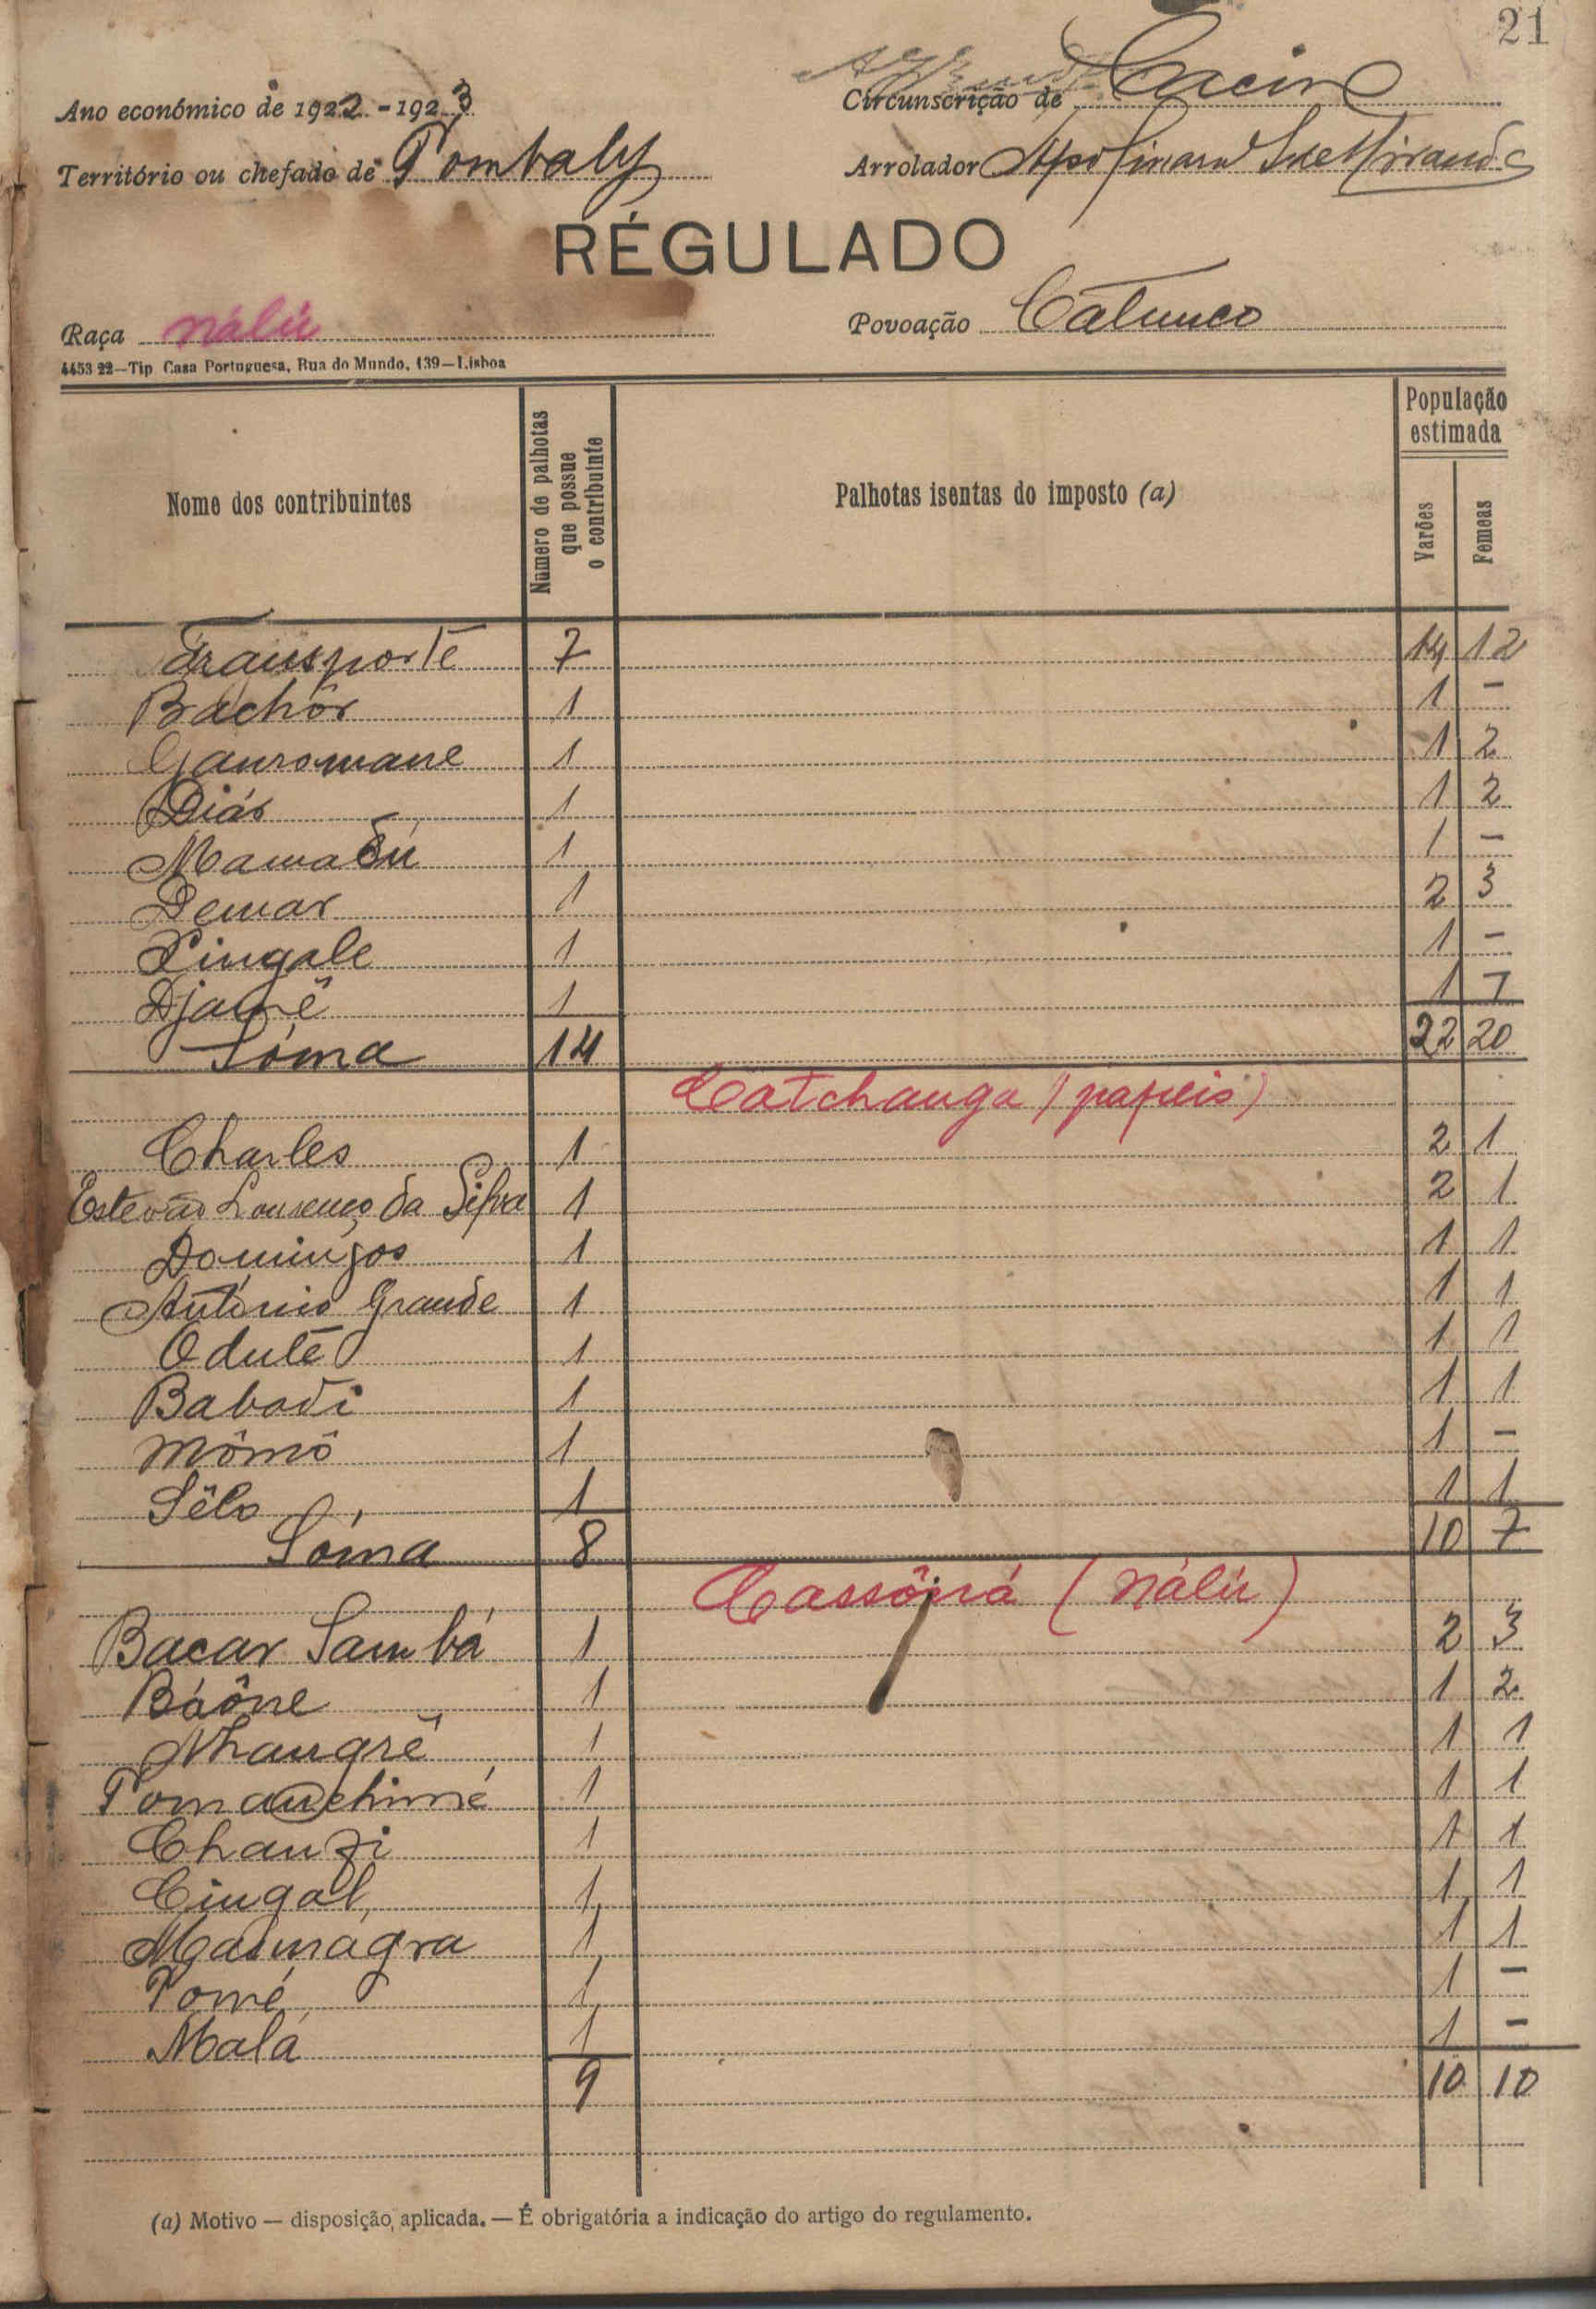 21
Ano económico de 1922-1923
Circunscrição de Cacine
Território ou chefado de Tombaly
Arrolador Apolinario S de Miranda
RÉGULADO
Raça nálú
Povoação Catunco
4453 22—Tip Casa Portuguesa, Rua do Mundo, 139—Lisboa
Nome dos contribuintes
Número de palhotas que possue o contribuinte
Palhotas isentas do imposto (a)
População estimada
Varões
Femeas
Transporte 7 14 12
Bachôr 1 1 -
Gauromane 1 1 2
Diás 1 1 2
Mamadú 1 1 -
Demar 1 2 3
Pingale 1 1 -
Djamê 1 1 1
Sóma 14 22 20
Catchanga (papeis)
Charles 1 2 1
Estevão Lourenço da Silva 1 2 1
Domingos 1 1 1
António Grande 1 1 1
Odutê 1 1 1
Babadi 1 1 1
Mômô 1 1 -
Sêlo 1 1 1
Sóma 8 10 7
Cassôná (nálú)
Bacar Sambá 1 2 3
Báône 1 1 2
Nhangrê 1 1 1
Tomanchimé 1 1 1
Chanzi 1 1 1
Cingal 1 1 1
Masmagra 1 1 1
Tomé 1 1 -
Malá 1 1 -
9 10 10
(a) Motivo — disposição, aplicada. — É obrigatória a indicação do artigo do regulamento.